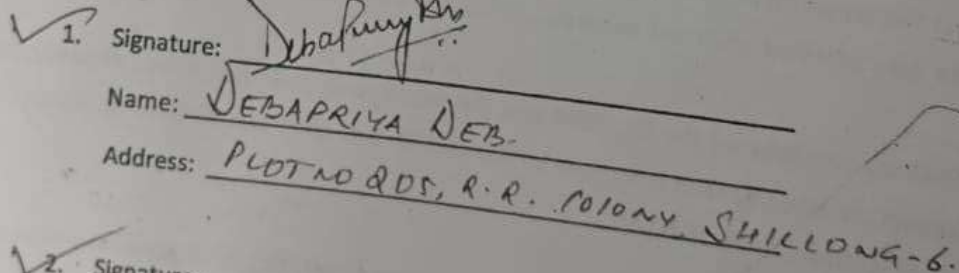 1. Signature: Debapriya Deb
Name: DEBAPRIYA DEB.
Address: PLOT NO 205, R.R. COLONY, SHILLONG-6.
2. Signatu